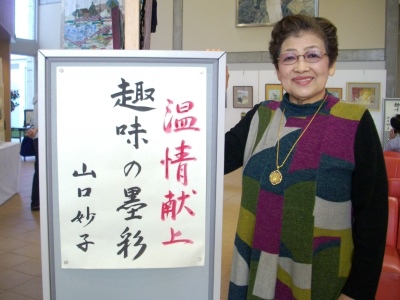 温情献上
趣味の墨彩
山口妙子